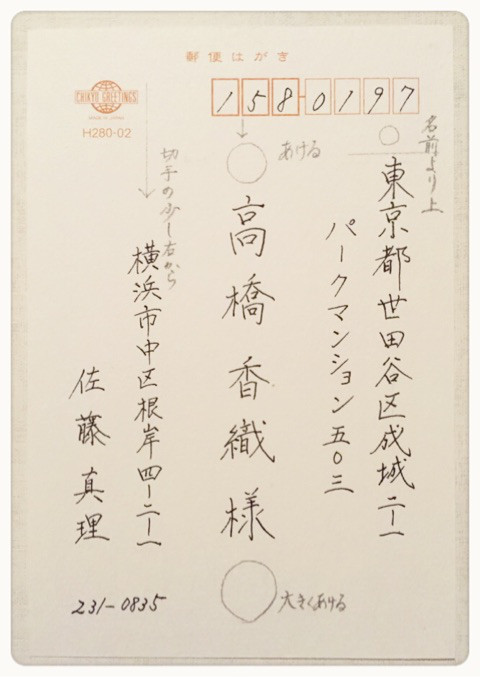 郵便はがき
CHIKYU GREETINGS
MADE IN JAPAN
H280-02
158-0197
名前より上
東京都世田谷区成城二ー一
パークマンション五〇三
あける
高橋香織様
大きくあける
切手の少し右から
横浜市中区根岸四ー二ー一
佐藤真理
231-0835